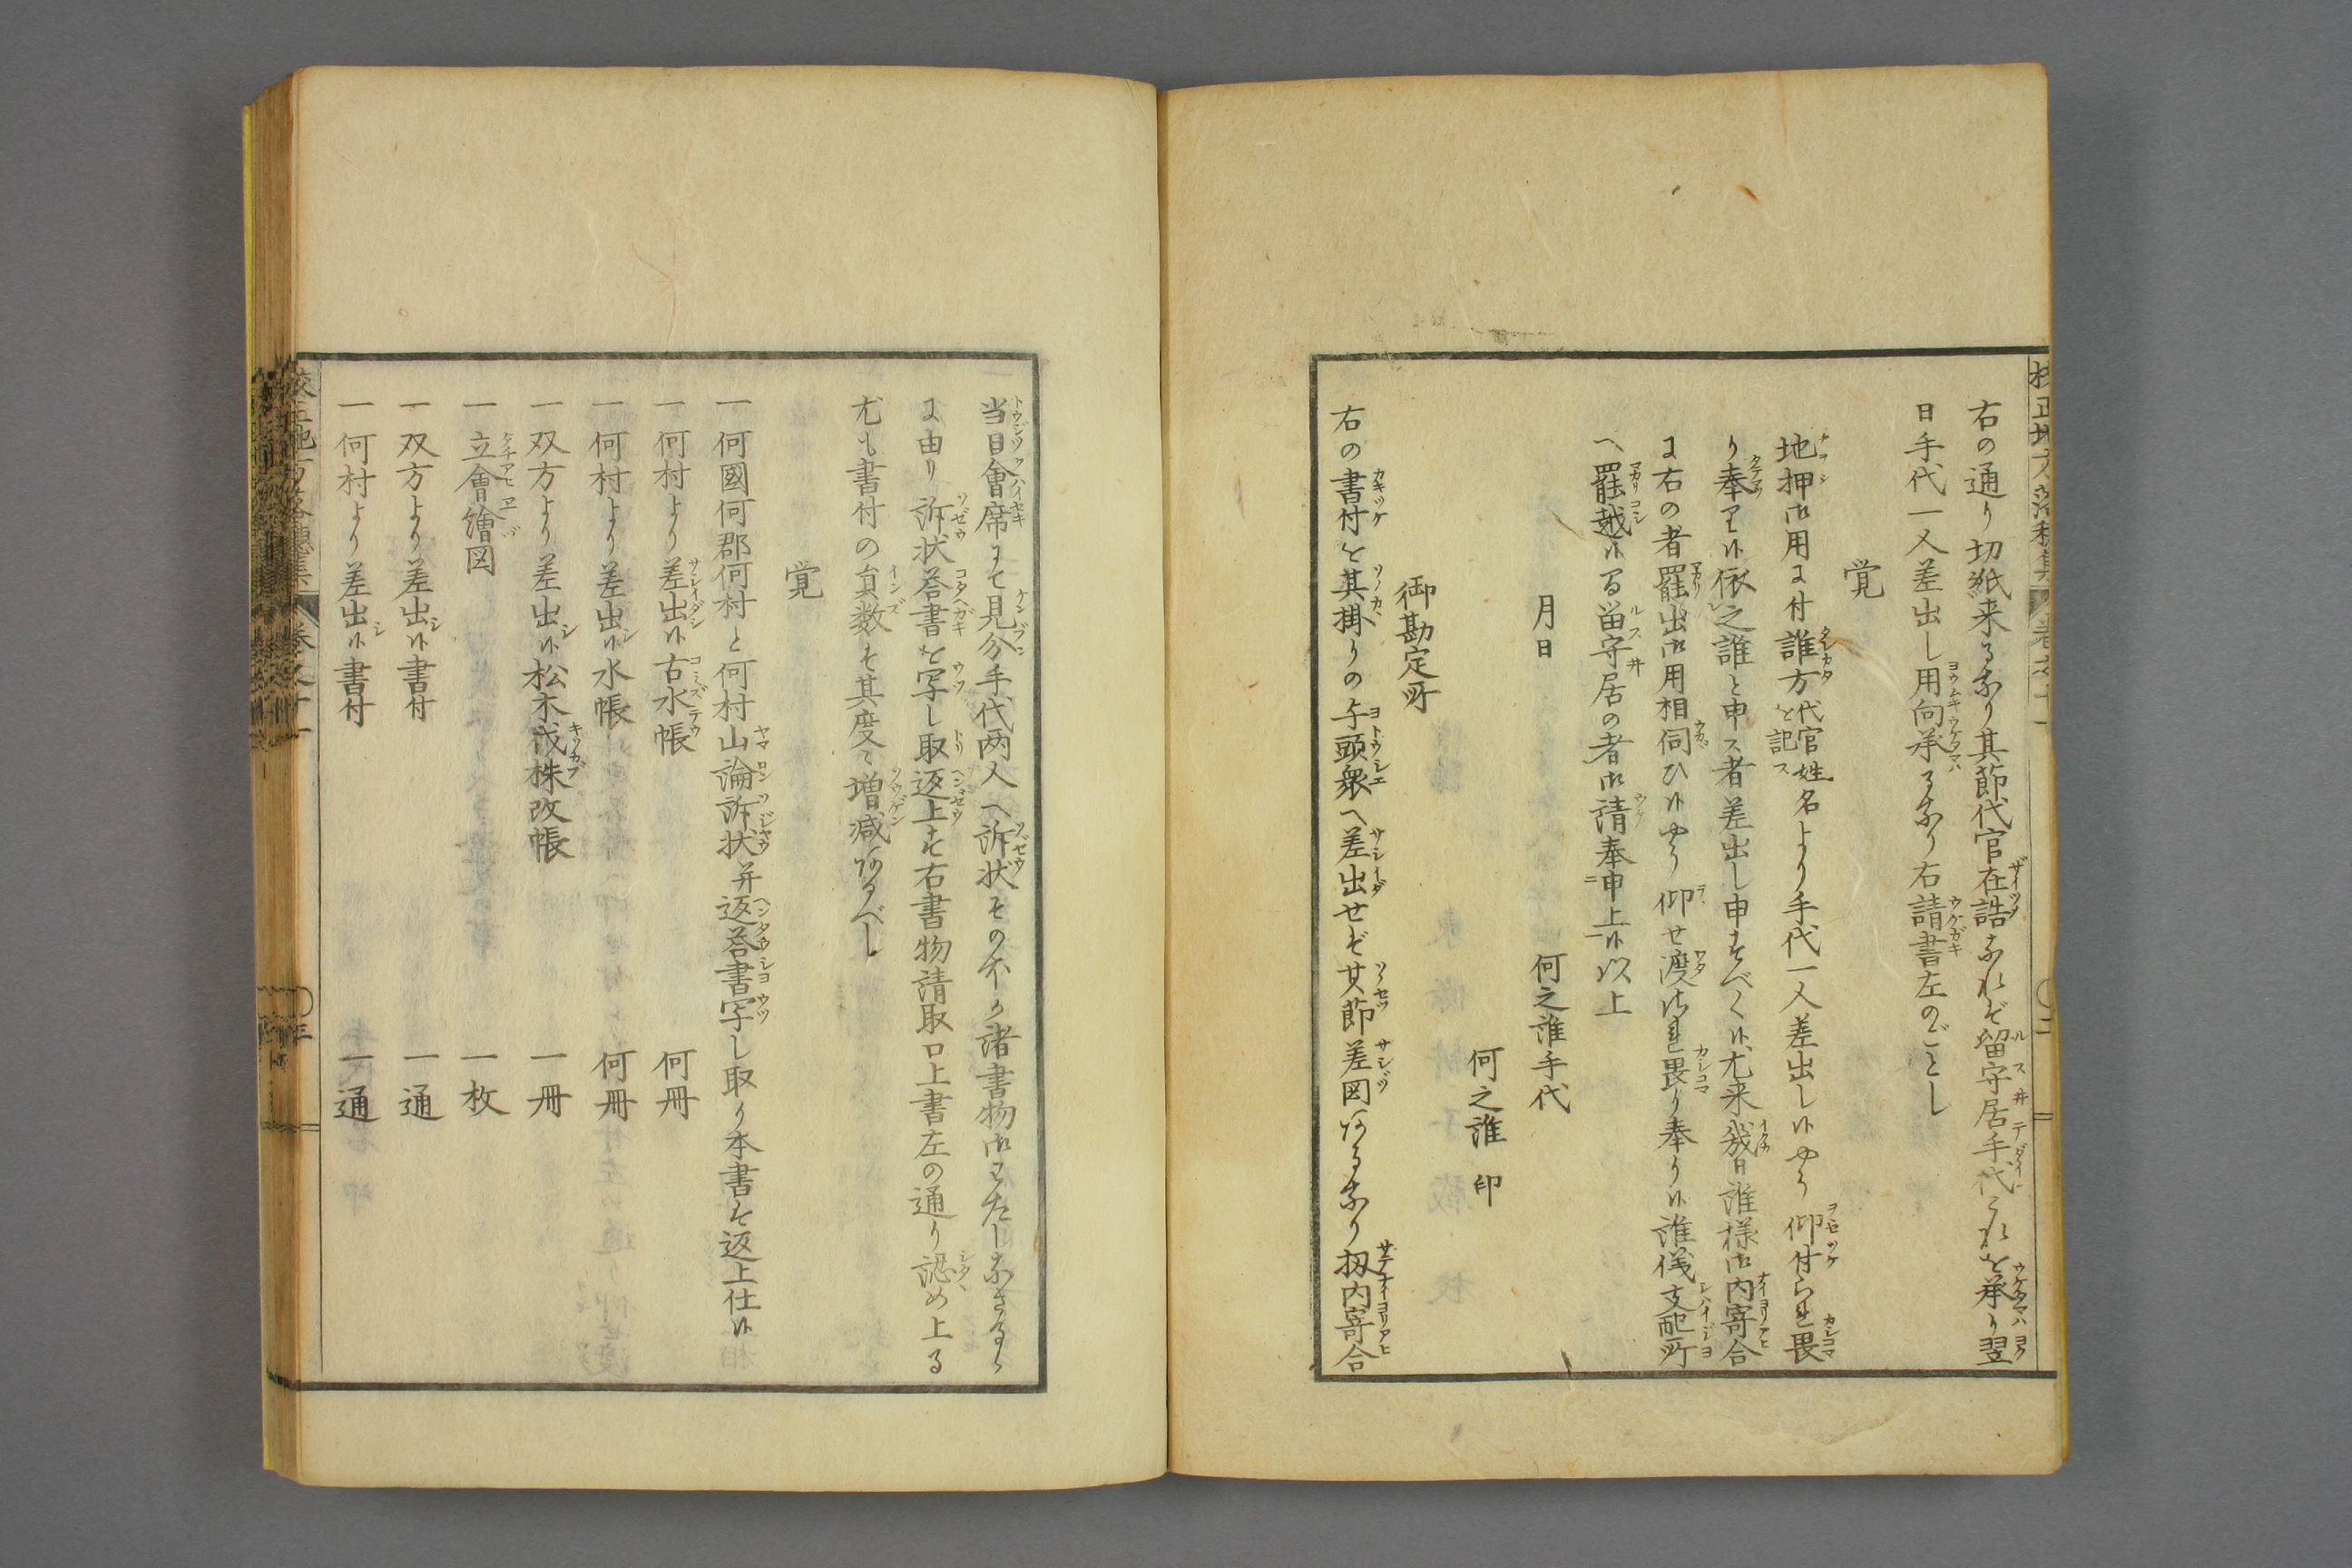 右の通り切紙来る成り其節代官在詰なれど留守居手代これを承り翌
日手代一人差出し用向承る成り右請書左のごとし
覚
地押御用に付誰方代官姓名を記スより手代一人差出し候やう仰付られ畏
り奉り候依之誰と申ス者差出し申すべく候尤来幾日誰様御内寄合
に右の者罷出御用相伺ひ候やう仰せ渡され畏り奉り候誰儀支配所
へ罷越候間留守居の者御請奉申上候以上
月日
何之誰手代
何之誰 印
御勘定所
右の書付を其掛りの与頭衆へ差出せば其節差図ある成り扨内寄合
当日會席にて見分手代両人へ訴状その外の諸書物御わたし
に由り訴状荅書を写し取返上す右書物請取口上書左の通り認め上る
尤も書付の員数は其度々増減あるべし
覚
一何國何郡何村と何村山論訴状并返荅書写し取り本書は返上仕候
一何村より差出シ候古水帳 何冊
一何村より差出シ候水帳 何冊
一双方より差出シ候松木伐株改帳 一冊
一立會繪図 一枚
一双方より差出シ候書付 一通
一何村より差出シ候書付 一通